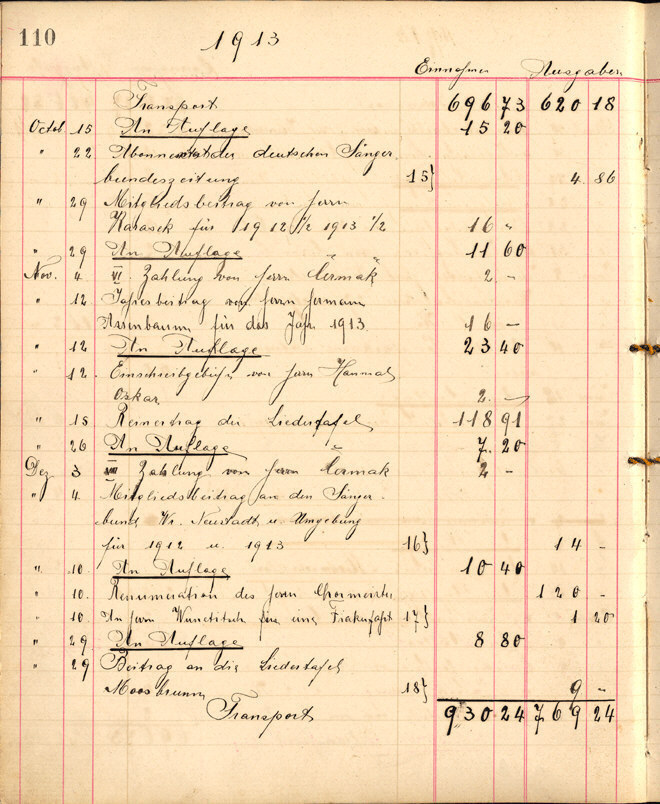 110
1913
Einnahmen Ausgaben
Transport 696 73 620 18
Octob. 15 An Auflage 15 20
" 22 Abonnement der deutschen Sänger
bundeszeitung 15} 4 86
" 29 Mitgliedsbeitrag von Herrn
Karasek für 1912 1/2 1913 1/2 16 "
" 29 An Auflage 11 60
Nov. 4 VI. Zahlung von Herrn Čermak 2 -
" 12 Jahresbeitrag von Herrn Hermann
Assenbaum für das Jahr 1913. 16 -
" 12 An Auflage 23 40
" 12. Einschreibgebühr von Herrn
Oskar 2. -
" 15 Reinertrag der Liedertafel 118 91
" 26 An Auflage 7. 20
Dez 3 VII Zahlung von Herrn Čermak 2 -
" 4. Mitgliedsbeitrag an den Sänger-
bund Wr. Neustadt u. Umgebung
für 1912 u. 1913 16} 14 -
" 10. An Auflage 10 40
" 10. Renumeration des Herrn Chormeister 120 -
" 10 An Herrn für eine 17} 1 20
" 29 An Auflage 8 80
" 29 Beitrag an die Liedertafel
Moosbrunn 18} 9 -
Transport 930 24 769 24